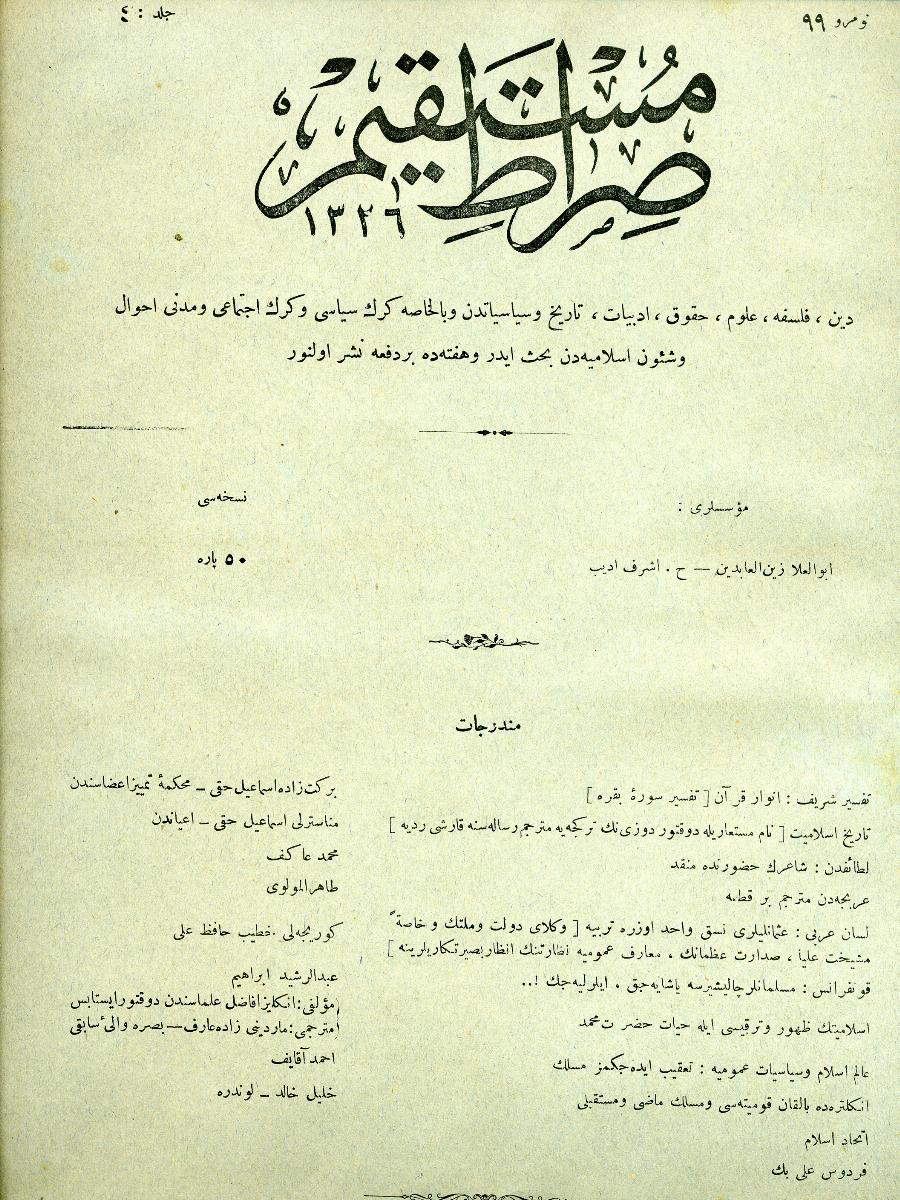 نومرو ٩٩
جلد : ٤
صراط مستقيم
١٣٢٦
دين ، فلسفه ، علوم ، حقوق ، ادبيات ، تاريخ وسياسياتدن وبالخاصه كرك سياسى وكرك اجتماعى ومدنى احوال
وشئون اسلاميه‌دن بحث ايدر وهفته‌ده بردفعه نشر اولنور
مؤسسلرى :
ابوالعلا زين‌العابدين — ح . اشرف اديب
نسخه‌سى
٥٠ پاره
مندرجات
تفسير شريف : انوار قرآن [ تفسير سورۀ بقره ]
بركت‌زاده اسماعيل حقى – محكمۀ تمييز اعضاسندن
تاريخ اسلاميت [ نام مستعاريله دوقتور دوزى‌نك تركجه‌يه مترجم رساله‌سنه قارشى رديه ]
مناسترلى اسماعيل حقى – اعياندن
لطائفدن : شاعرك حضورنده منقد
محمد عاكف
عربجه‌دن مترجم بر قطعه
طاهرالمولوى
لسان عربى : عثمانليلرى نسق واحد اوزره تربيه [ وكلاى دولت وملتك و خاصةً
مشيخت عليا ، صدارت عظمانك ، معارف عموميه نظارتنك انظار بصيرتكاريلرينه ]
كوريجه‌لى . خطيب حافظ على
قونفرانس : مسلمانلر چاليشيرسه ياشايه‌جق ، ايلروليه‌جك !..
عبدالرشيد ابراهيم
اسلاميتك ظهور وترقيسى ايله حيات حضرت محمد
مؤلفى : انكليز افاضل علماسندن دوقتور ايستايس
مترجمى : ماردينى زاده عارف – بصره والئ سابقى
عالم اسلام وسياسيات عموميه : تعقيب ايده‌جكمز مسلك
احمد آقايف
انكلتره‌ده بالقان قوميته‌سى ومسلك ماضى ومستقبلى
خليل خالد – لوندره
اتحاد اسلام
فردوس على بك